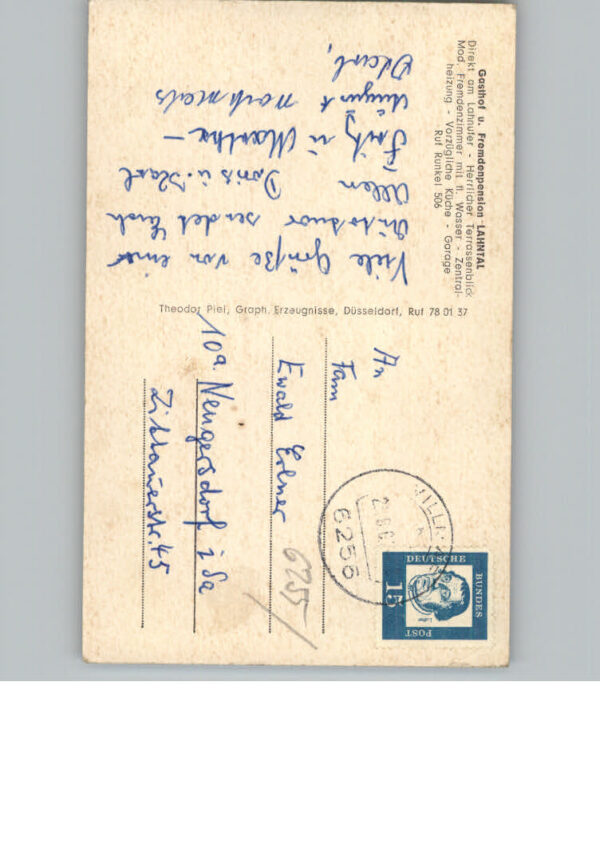 Gasthof u. Fremdenpension LAHNTAL
Direkt am Lahnufer - Herrlicher Terrassenblick
Mod. Fremdenzimmer mit fl. Wasser - Zentral-
heizung - Vorzügliche Küche - Garage
Ruf Runkel 506
Viele Grüße von einer
sendet Euch
Allen Doris u. Karl
Fritz u Martha -
August nochmals
Theodor Piel, Graph. Erzeugnisse, Düsseldorf, Ruf 78 01 37
An
Fam
Ewald
10a. Neugersdorf i Sa
Zittauerstr. 45
6255
6256
DEUTSCHE
BUNDES
POST
15
Luther